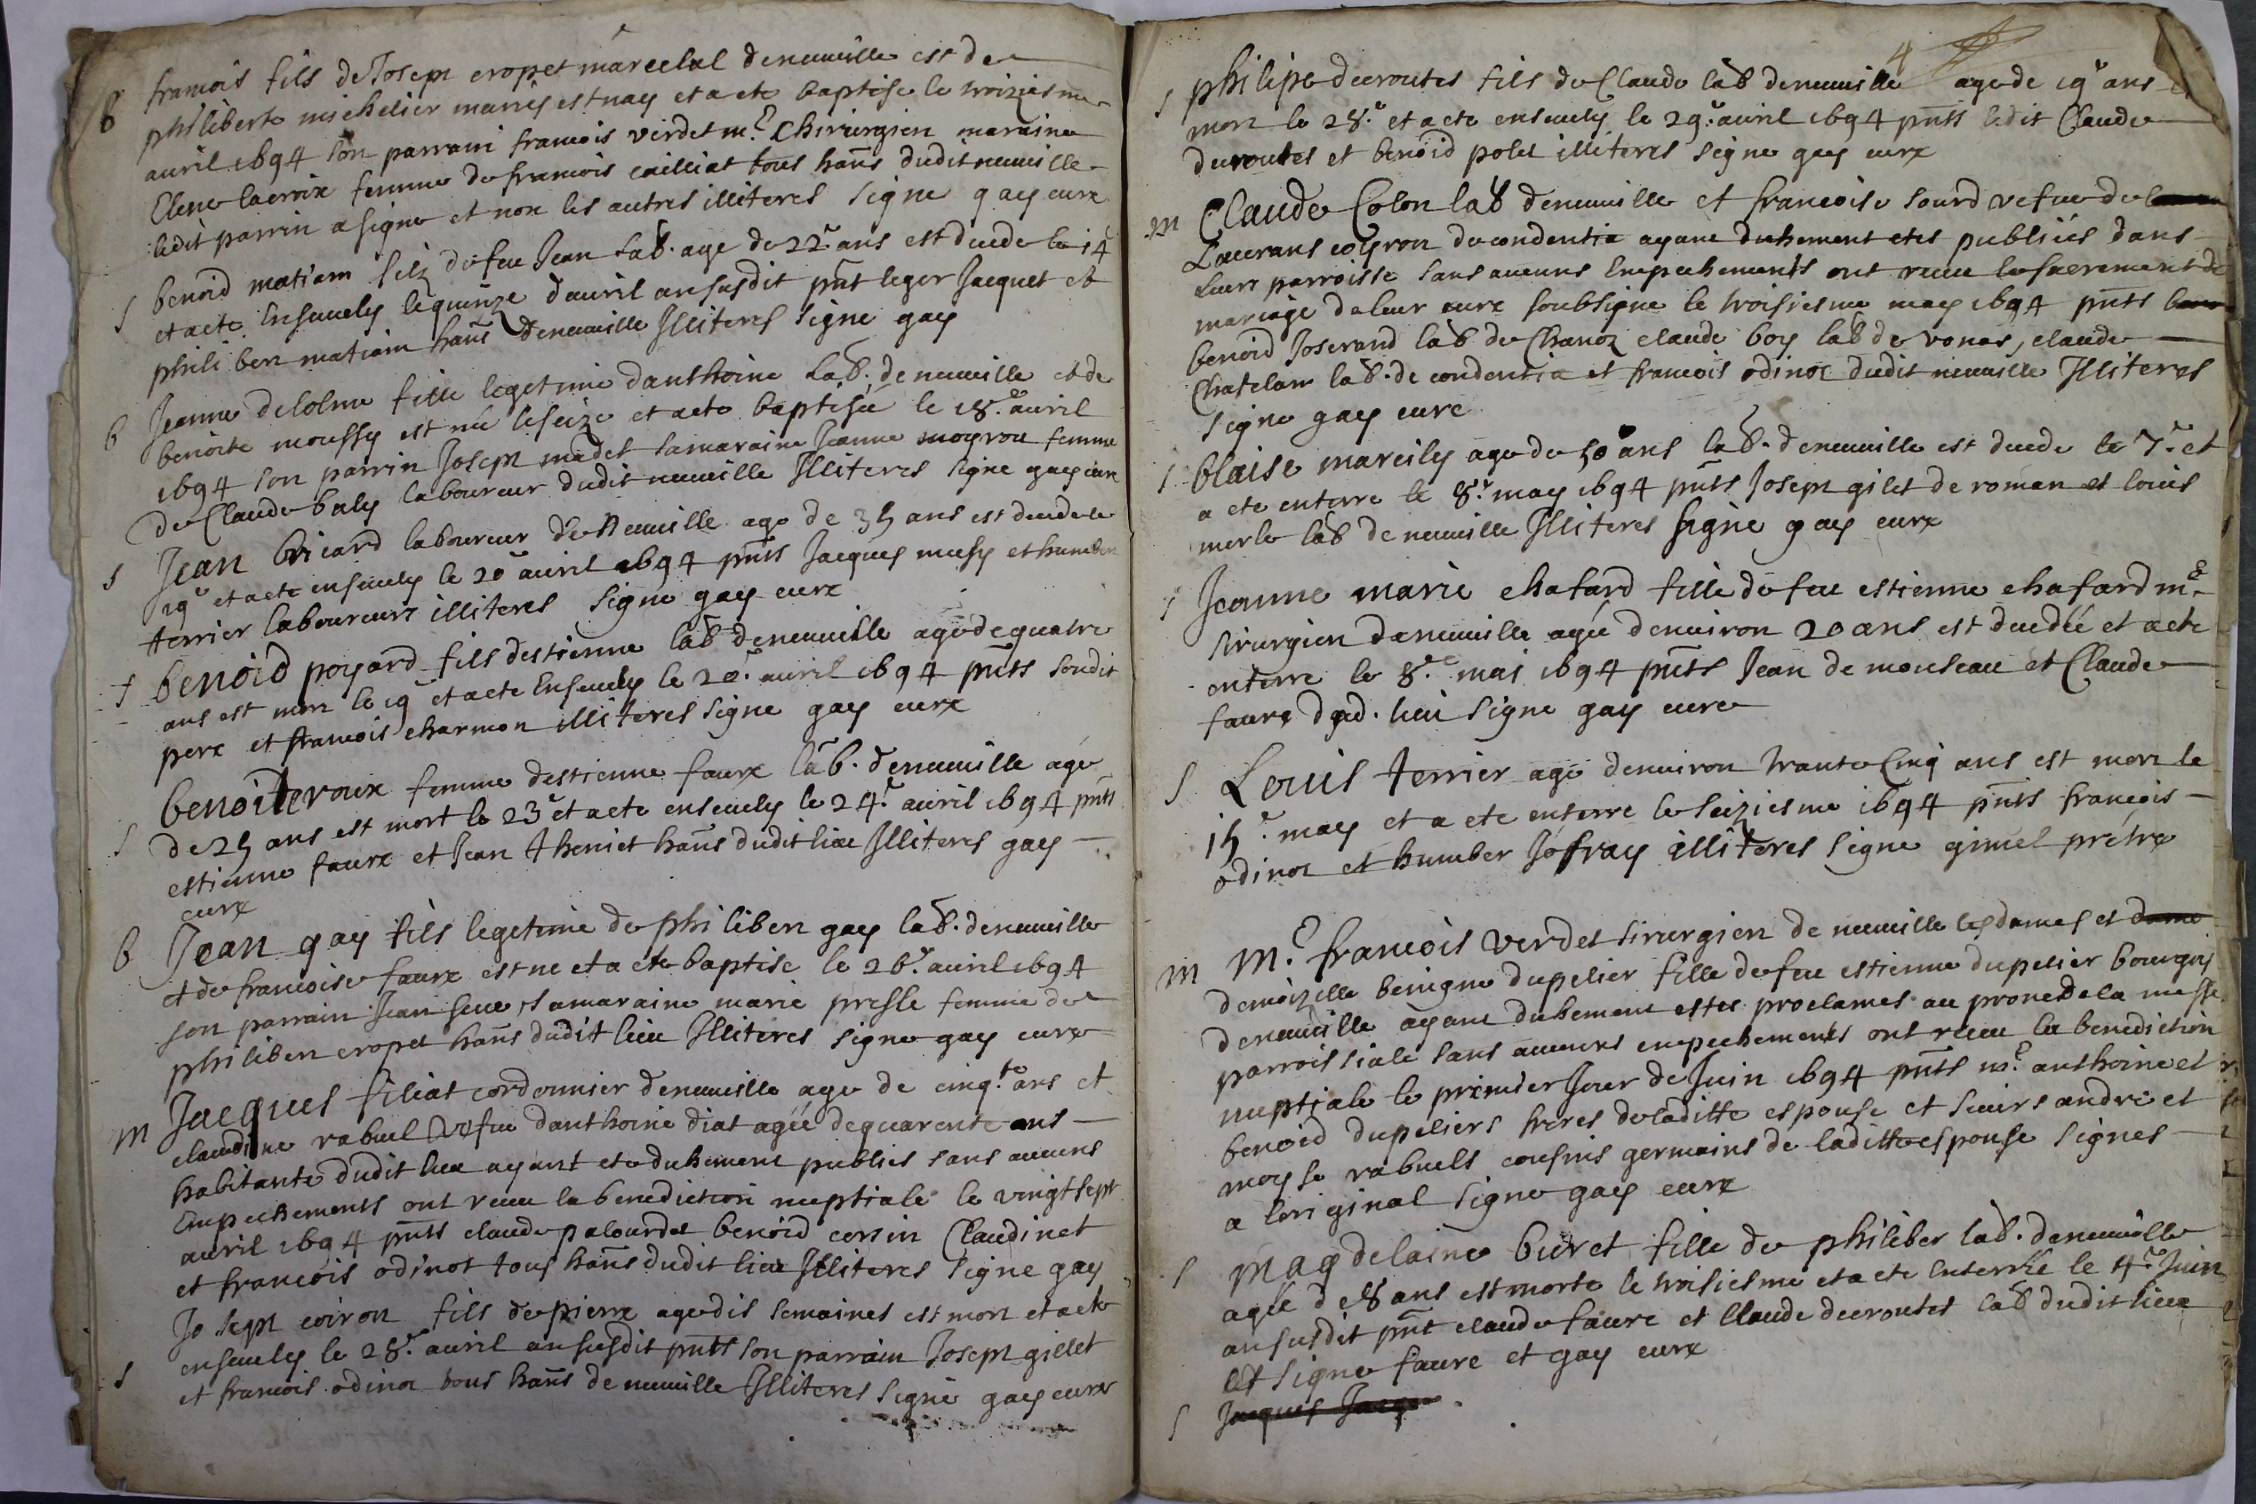 b
francois fils de Joseph cropet marechal deneuville est de
philiberte michelier mariés est nay et a ete baptise le troiziesme
auril 1694 son parrain francois verdet m.e Chirurgien maraine
Elene lacroix femme de francois cailliat tous hans dudit neuuille
ledit parrin a signe et non les autres illiteres signe gay cure
s
benoid matiam filz de feu Jean lab. age de 22 ans est decede le 14
et a ete Ensevely le quinze dauril an susdit pnt leger Jacquet et
philiben matiam hans deneuuille Illiteres signe gay
b
Jeanne delolme fille legetime danthoine Lab. de neuuille et de
benoite moussy est née le seize et a ete baptisée le 18.e auril
1694 son parrin Joseph madet sa maraine Jeanne moyrou femme
de Claude baly laboureur dudit neuuille Illiteres signe gay cure
s
Jean bricard laboureur de Neuuille age de 35 ans est decede le
19e et a ete ensevely le 20 auril 1694 pnts Jacques mussy et humber
terrier laboureurs illiteres signe gay cure
s
benoid poyard fils destienne lab deneuuille age de quatre
ans est mort le 19 et a ete Ensevely le 20. auril 1694 pnts soudit
pere et francois charmon illiteres signe gay cure
s
benoite roux femme destienne faure lab. deneuuille age
de 25 ans est mort le 23 et a ete ensevely le 24. auril 1694 pnts
estienne faure et Jean theniet hans dudit lieu Illiteres gay
cure
b
Jean gay fils legetime de philiben gay lab. deneuuille
et de francoise faure est ne et a ete baptise le 26. auril 1694
son parrain Jean seue, sa maraine marie presle femme de
philiben cropet hans dudit lieu Illiteres signe gay cure
m
Jacques filiat cordonnier deneuuille age de cinq.te ans et
claudine rabuel vefue danthoine diat agée de quarente ans
habitante dudit lieu ayant ete duhement publies sans aucuns
Empechements ont receu la benediction nuptiale le vingt sept
auril 1694 pnts claude palourdet benoid corsin Claudinet
et francois odinot tous hans dudit lieu Illiteres signe gay
s
Joseph coiron fils de pierre age dis semaines est mort et a ete
ensevely le 28. auril an susdit pnts son parrain Joseph gillet
et francois odinot tous hans de neuuille Illiteres signe gay cure
4
s
philipe decroutes fils de Claude lab deneuuille age de 19 ans est
mort le 28. et a ete ensevely le 29. auril 1694 pnts ledit Claude
decroutes et benoid polet illiteres signe gay cure
m
Claude Colon lab deneuuille et francoise sourd vefue de
Laurans coyron de condentia ayant duhement etes publiés dans
leurs parroisse sans aucuns Empechements ont receu le sacrement de
mariage de leur cure soubsigne le troisiesme may 1694 pnts
benoid Joserand lab de Chanoz claude boy lab de vonas, claude
Chatelan lab. de condentia et francois odinot dudit neuuille Illiteres
signe gay cure
s
blaise marcily age de 50 ans lab. deneuuille est decede le 7. et
a ete enterre le 8. may 1694 pnts Joseph gilet de roman et louis
merle lab de neuuille Illiteres signe gay cure
s
Jeanne marie chafard fille de feu estienne chafard m.e
sirurgien deneuuille agée denuiron 20 ans est decedée et a ete
enterre le 8.e mai 1694 pnts Jean de monseau et Claude
faure dud. lieu signe gay cure
s
Louis terrier age denuiron trante Cinq ans est mort le
15. may et a ete enterre le seiziesme 1694 pnts francois
odinot et humber Jofray illiteres signe gimel prétre
m
M.e francois verdet sirurgien de neuuille les dames et dame
demoizelle benigne dupelier fille de feu estienne dupelier bourgois
deneuuille ayant duhement estes proclames au prones de la messe
parroissiale sans aucuns empechements ont receu la benediction
nuptiale le premier Jour de Juin 1694 pnts m.e anthoine et
benoid dupeliers freres de laditte espouse et sieurs andre et
moyse rabuels cousins germains de laditte espouse signes
a loriginal signe gay cure
s
Magdelaine buret fille de philiber lab. deneuuille
agée de 8 ans est morte le troisiesme et a ete Enterrée le 4. Juin
an susdit pnt claude faure et Claude decroutes lab dudit lieu
et signe faure et gay cure
s
Jacques Jacq